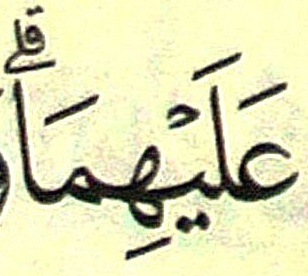 عَلَيْهِمَاۗ